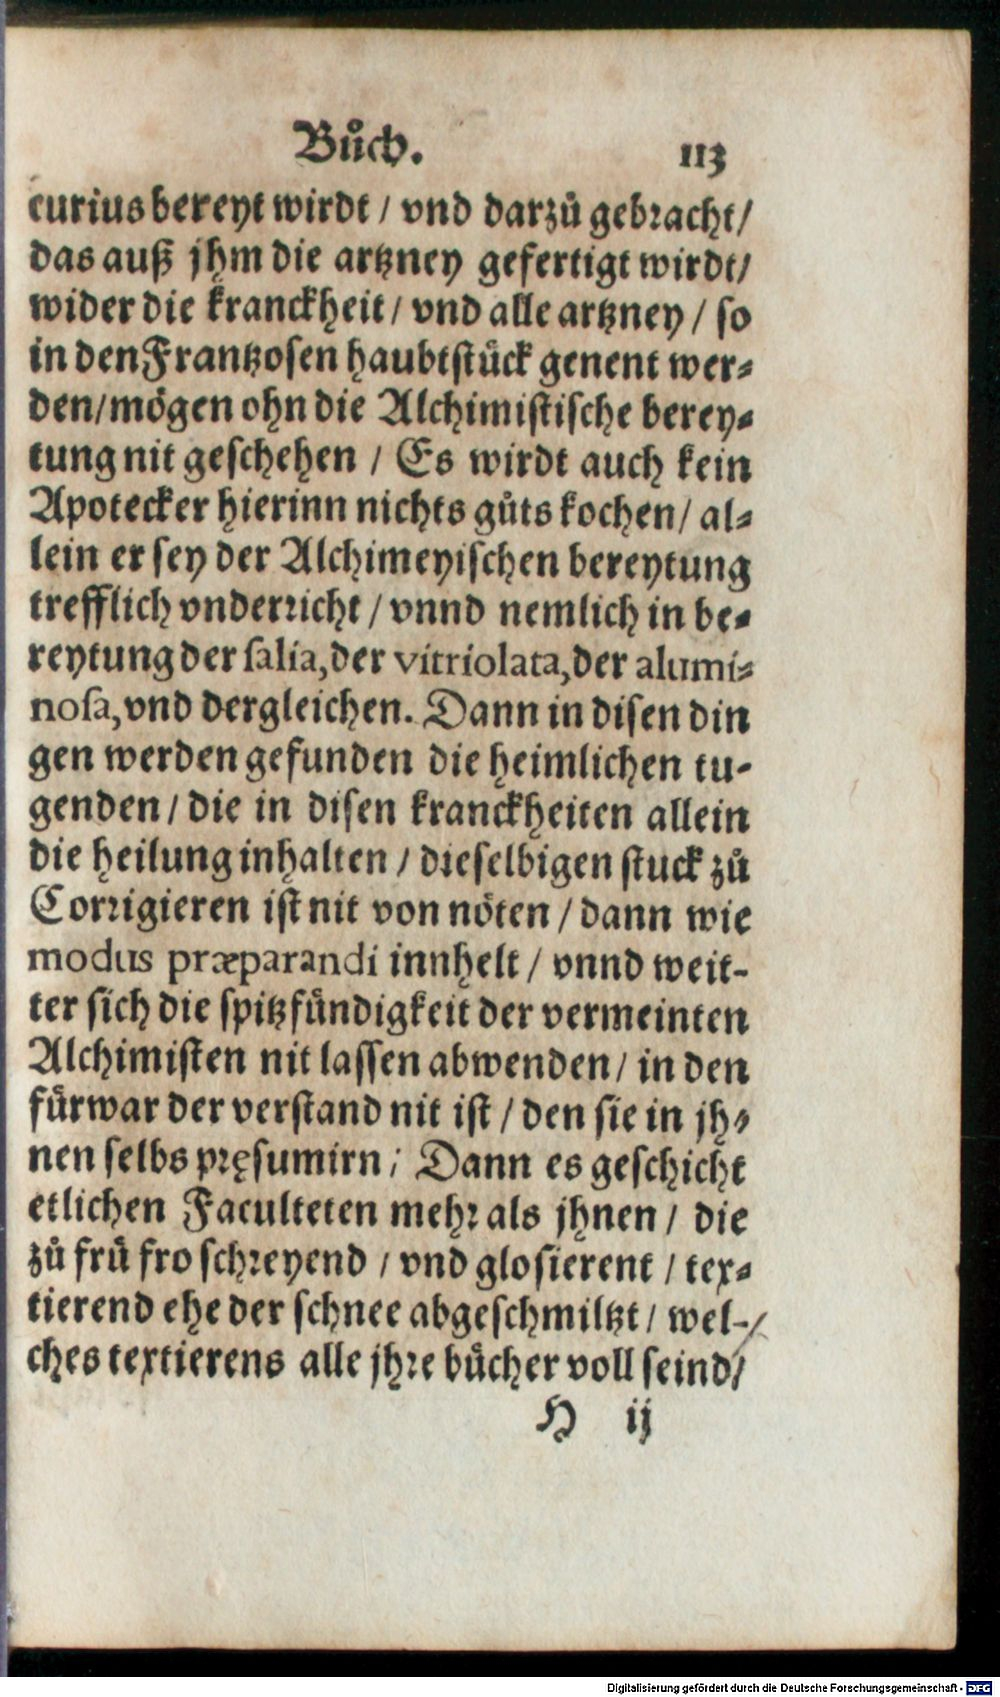 Bůch. 113
curius bereyt wirdt / vnd darzů gebracht /
das auß jhm die artzney gefertigt wirdt /
wider die kranckheit / vnd alle artzney / so
in den Frantzosen haubtstück genent wer⸗
den / mögen ohn die Alchimistische berey⸗
tung nit geschehen / Es wirdt auch kein
Apotecker hierinn nichts gůts kochen / al⸗
lein er sey der Alchimeyischen bereytung
trefflich vnderricht / vnnd nemlich in be⸗
reytung der salia, der vitriolata, der alumi⸗
nosa, vnd dergleichen. Dann in disen din
gen werden gefunden die heimlichen tu-
genden / die in disen kranckheiten allein
die heilung inhalten / dieselbigen stuck zů
Corrigieren ist nit von nöten / dann wie
modus præparandi innhelt / vnnd weit-
ter sich die spitzfündigkeit der vermeinten
Alchimisten nit lassen abwenden / in den
fürwar der verstand nit ist / den sie in jh⸗
nen selbs pręsumirn; Dann es geschicht
etlichen Faculteten mehr als jhnen / die
zů frü fro schreyend / vnd glosierent / tex⸗
tierend ehe der schnee abgeschmiltzt / wel-
ches textierens alle jhre bücher voll seind /
H ij
Digitalisierung gefördert durch die Deutsche Forschungsgemeinschaft - DFG